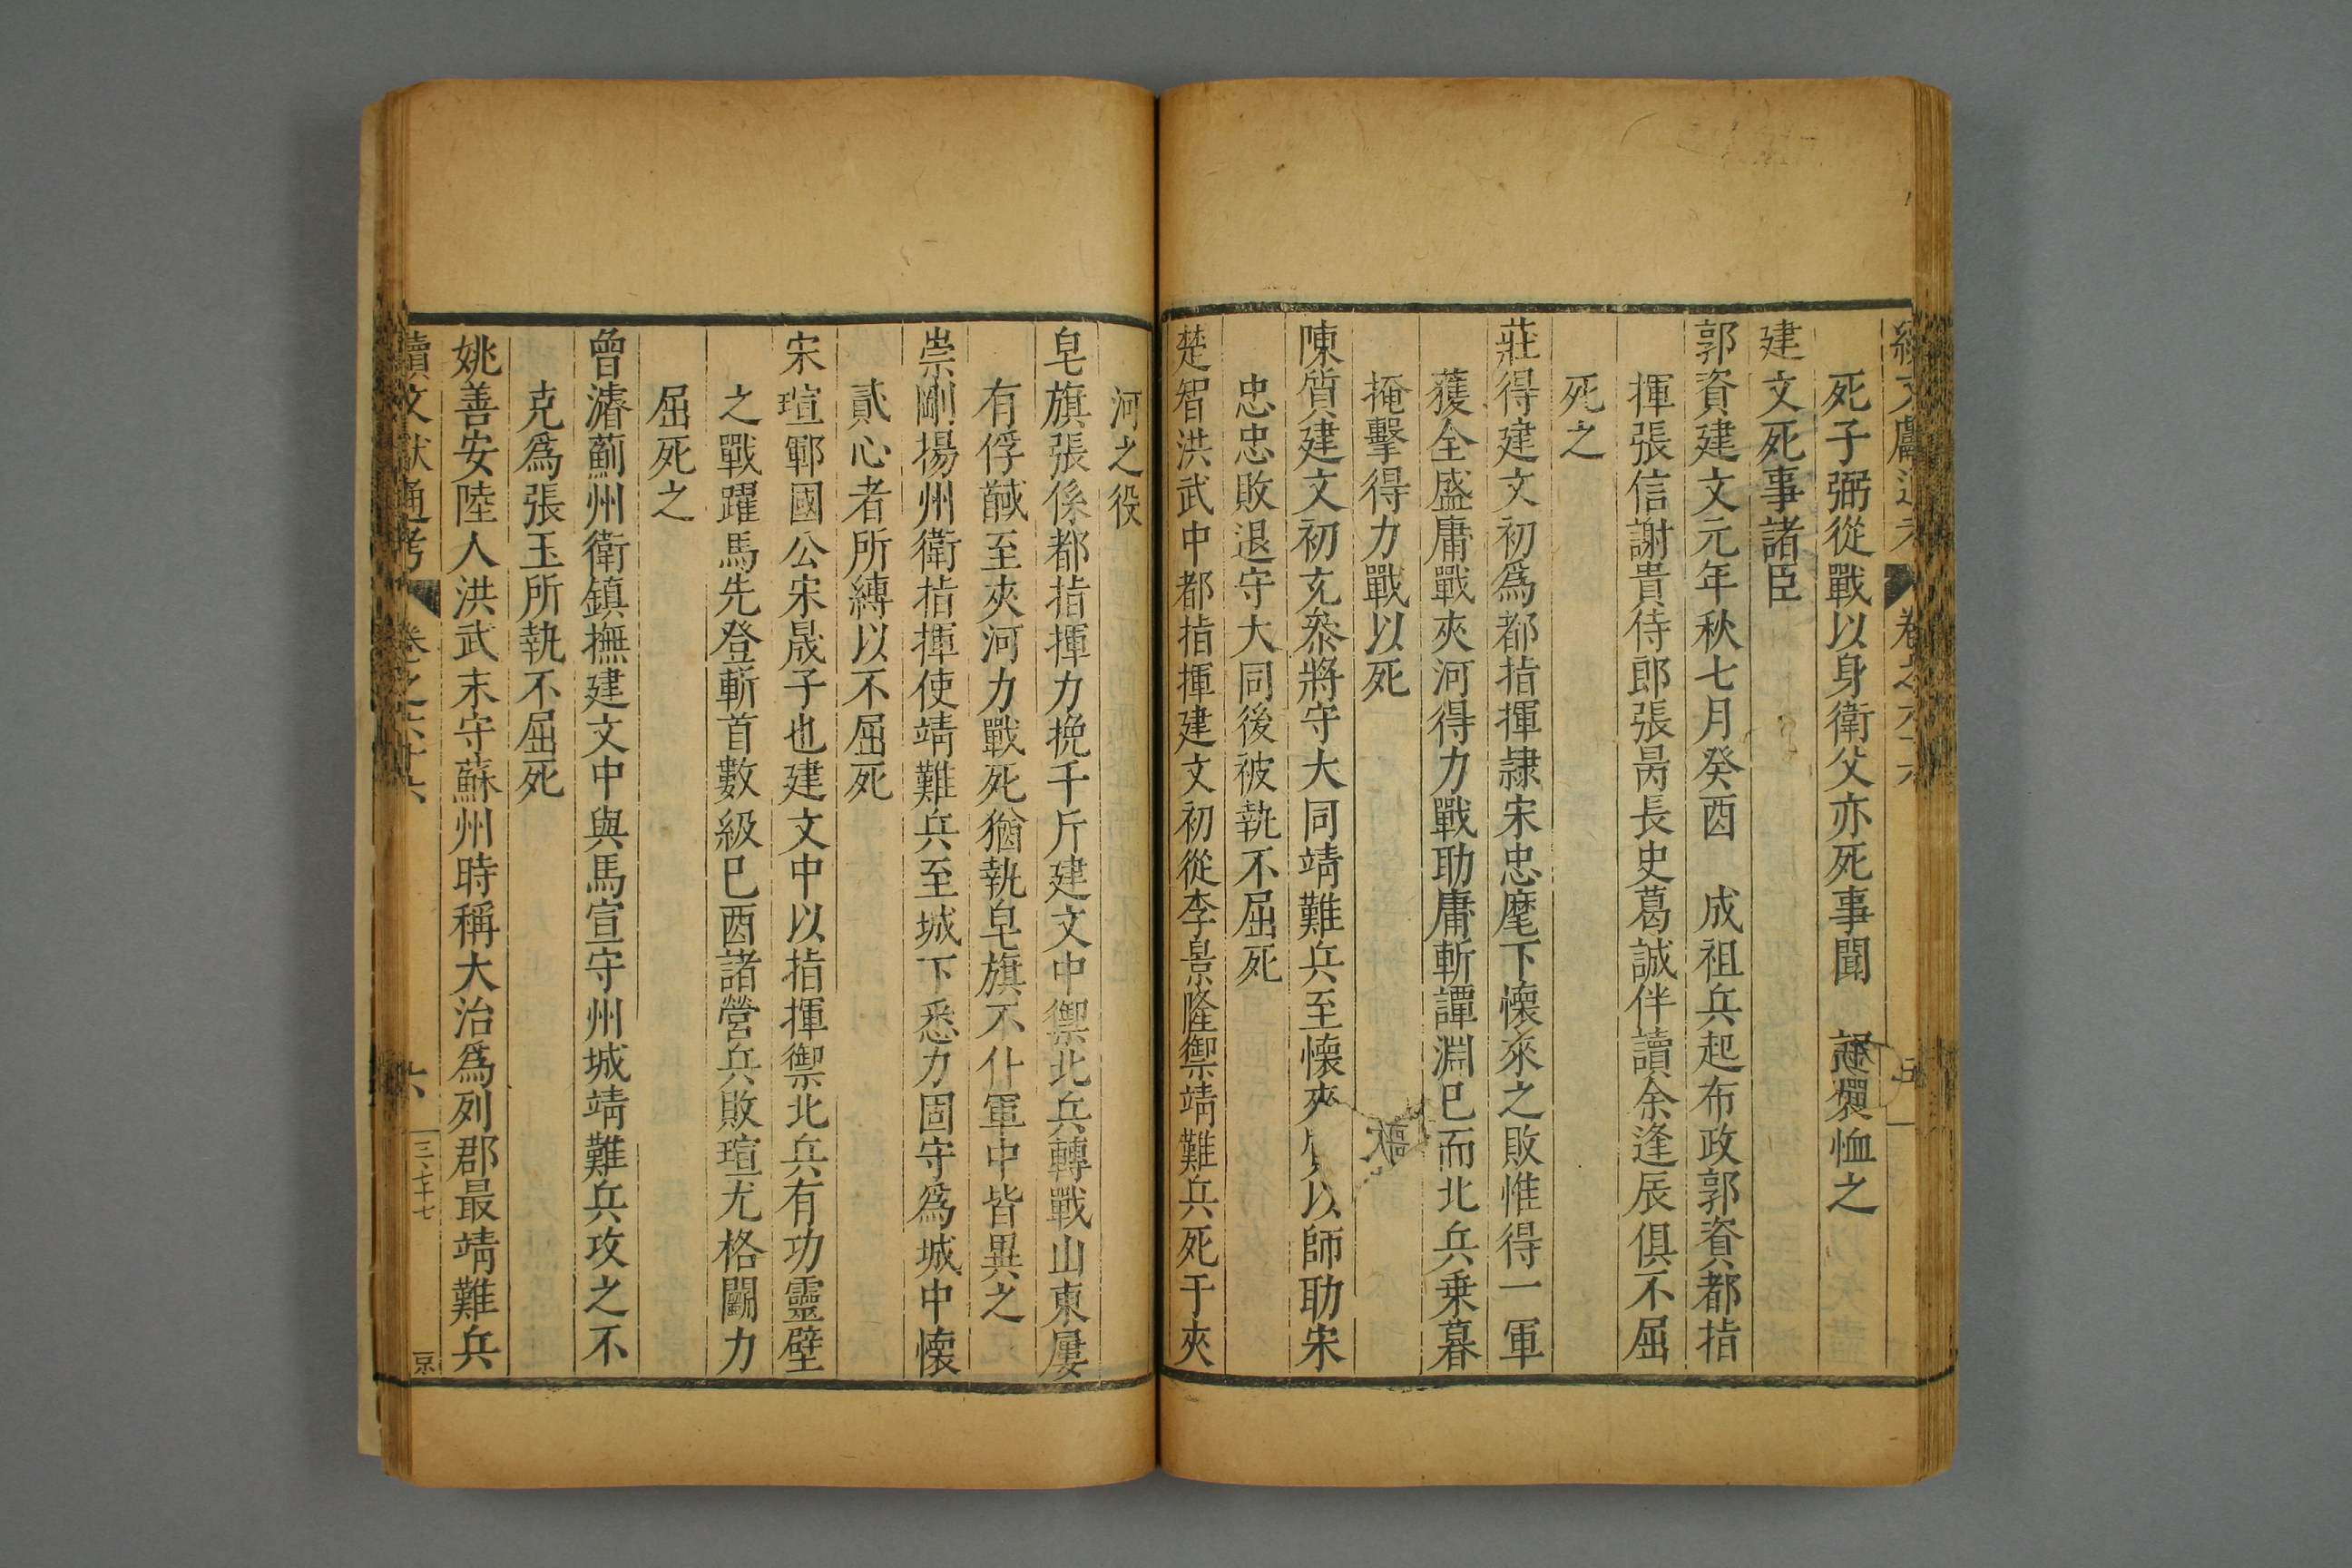 續文獻通考 卷之六十六 五
死子弼從戰以身衛父亦死事聞 詔褒恤之
建文死事諸臣
郭資建文元年秋七月癸酉 成祖兵起布政郭資都指
揮張信謝貴侍郎張昺長史葛誠伴讀余逢辰俱不屈
死之
莊得建文初爲都指揮隷宋忠麾下懐來之敗惟得一軍
獲全盛庸戰夾河得力戰助庸斬譚淵巳而北兵乗暮
掩擊得力戰以死
陳質建文初充叅將守大同靖難兵至懐來質以師助宋
忠忠敗退守大同後被執不屈死
楚智洪武中都指揮建文初從李景隆禦靖難兵死于夾
河之役
皂旗張係都指揮力挽千斤建文中禦北兵轉戰山東屢
有俘馘至夾河力戰死猶執皂旗不仆軍中皆異之
崇剛揚州衛指揮使靖難兵至城下悉力固守爲城中懐
貳心者所縛以不屈死
宋瑄鄆國公宋晟子也建文中以指揮禦北兵有功靈壁
之戰躍馬先登斬首數級巳酉諸營兵敗瑄尤格鬬力
屈死之
曾濬薊州衛鎮撫建文中與馬宣守州城靖難兵攻之不
克爲張玉所執不屈死
姚善安陸人洪武末守蘇州時稱大治爲列郡最靖難兵
續文獻通考 卷之六十六 六 三、七十七